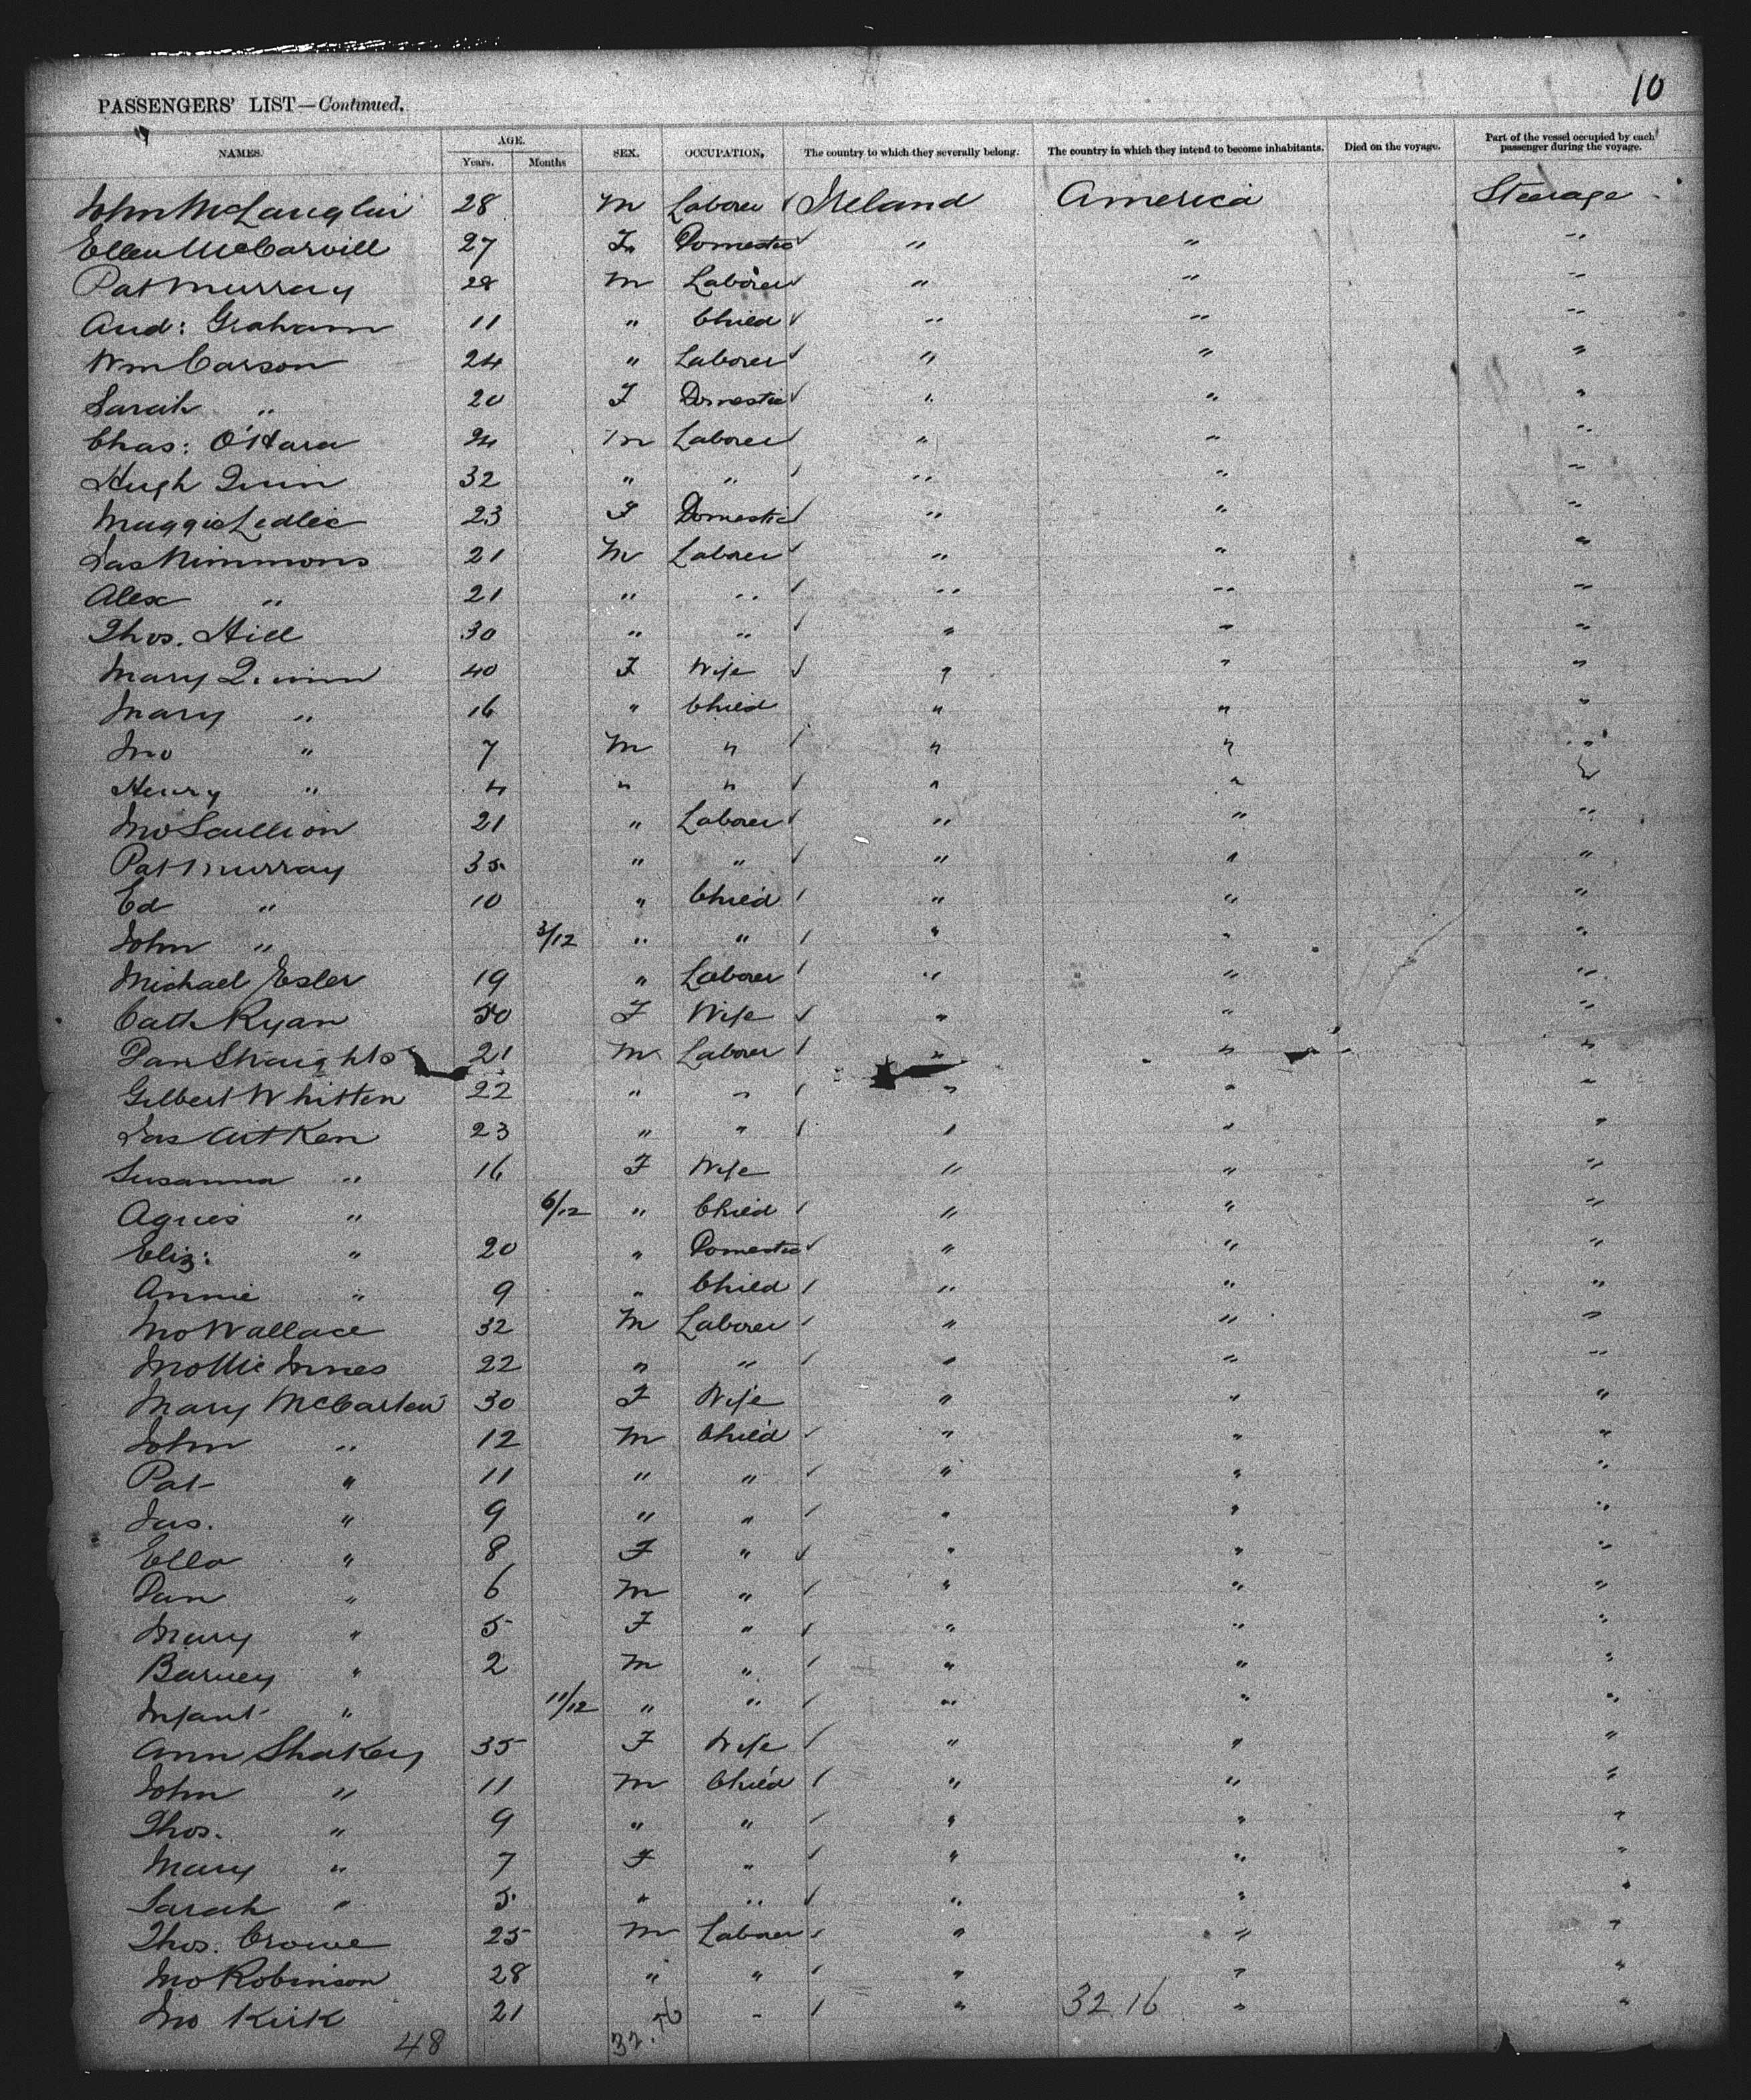 10
PASSENGERS' LIST—Continued.
NAMES. AGE. Years. Months SEX. OCCUPATION, The country to which they severally belong. The country in which they intend to become inhabitants. Died on the voyage. Part of the vessel occupied by each passenger during the voyage.
John McLauglin 28 M Laborer Ireland America Steerage
Ellen McCarvill 27 F Domestic " " "
Pat Murray 28 M Laborer " " "
And: Graham 11 " Child " " "
Wm Carson 24 " Laborer " " "
Sarah " 20 F Domestic " " "
Chas: O'Hara 24 M Laborer " " "
Hugh Quin 32 " " " " "
Maggie Ledlie 23 F Domestic " " "
Jas Nimmons 21 M Laborer " " "
Alex " 21 " " " " "
Thos. Hill 30 " " " " "
Mary Quinn 40 F Wife " " "
Mary " 16 " Child " " "
Jno " 7 M " " " "
Henry " 4 " " " " "
Jno Scullion 21 " Laborer " " "
Pat Murray 35 " " " " "
Ed " 10 " Child " " "
John " 3/12 " " " " "
Michael Esler 19 " Laborer " " "
Cath Ryan 50 F Wife " " "
Dan Straights 21 M Laborer " " "
Gilbert Whitten 22 " " " " "
Jas Aitken 23 " " " " "
Susanna " 16 F Wife " " "
Agnes " 6/12 " Child " " "
Eliz: " 20 " Domestic " " "
Annie " 9 " Child " " "
Jno Wallace 32 M Laborer " " "
Mollie Innes 22 " " " " "
Mary McCarten 30 F Wife " " "
John " 12 M Child " " "
Pat " 11 " " " " "
Jas. " 9 " " " " "
Ella " 8 F " " " "
Dan " 6 M " " " "
Mary " 5 F " " " "
Barney " 2 M " " " "
Infant " 11/12 " " " " "
Ann Sharkey 35 F Wife " " "
John " 11 M Child " " "
Thos. " 9 " " " " "
Mary " 7 F " " " "
Sarah " 5 " " " " "
Thos. Crowe 25 M Laborer " " "
Jno Robinson 28 " " " " "
Jno Kirk 21 " " 32 16 " "
48 32.16